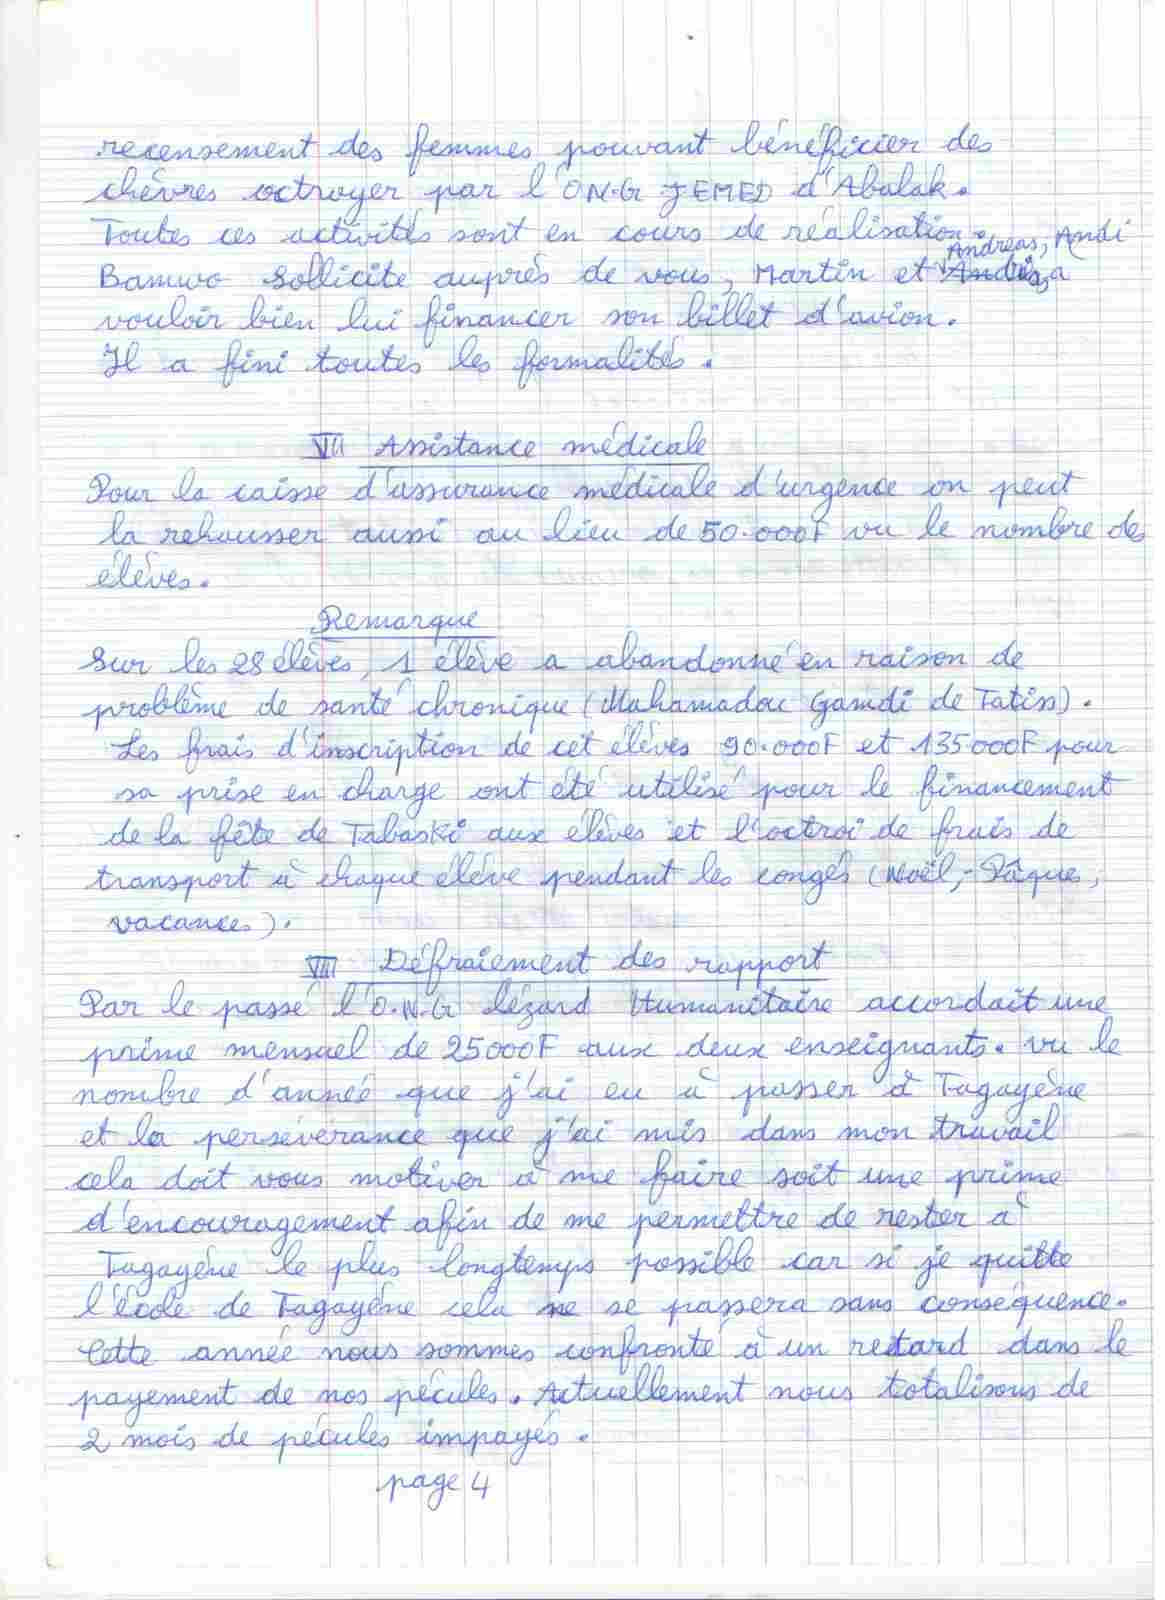 recensement des femmes pouvant bénéficier des
chèvres octroyer par l'O.N.G JEMED d'Abalak.
Toutes ces activités sont en cours de réalisation.
Andréas, Andi
Bamwo Sollicite auprès de vous, Martin et a
vouloir bien lui financer son billet d'avion.
Il a fini toutes les formalités.
VII Assistance médicale
Pour la caisse d'assurance médicale d'urgence on peut
la rehausser aussi au lieu de 50.000F vu le nombre des
élèves.
Remarque
Sur les 28 élèves, 1 élève a abandonné en raison de
problème de santé chronique (Mahamadou Gamdi de Tatiss).
Les frais d'inscription de cet élèves 90.000F et 135000F pour
sa prise en charge ont été utilisé pour le financement
de la fête de Tabaski aux élèves et l'octroi de frais de
transport à chaque élève pendant les congés (Noël, - Pâques,
vacances).
VIII Défraiement des rapport
Par le passé l'O.N.G lézard Humanitaire accordait une
prime mensuel de 25000F aux deux enseignants. Vu le
nombre d'année que j'ai eu à passer à Tagayène
et la persévérance que j'ai mis dans mon travail
cela doit vous motiver à me faire soit une prime
d'encouragement afin de me permettre de rester à
Tagayène le plus longtemps possible car si je quitte
l'école de Tagayène cela ne se passera sans conséquence.
Cette année nous sommes confronté à un retard dans le
payement de nos pécules. Actuellement nous totalisons de
2 mois de pécules impayés.
page 4